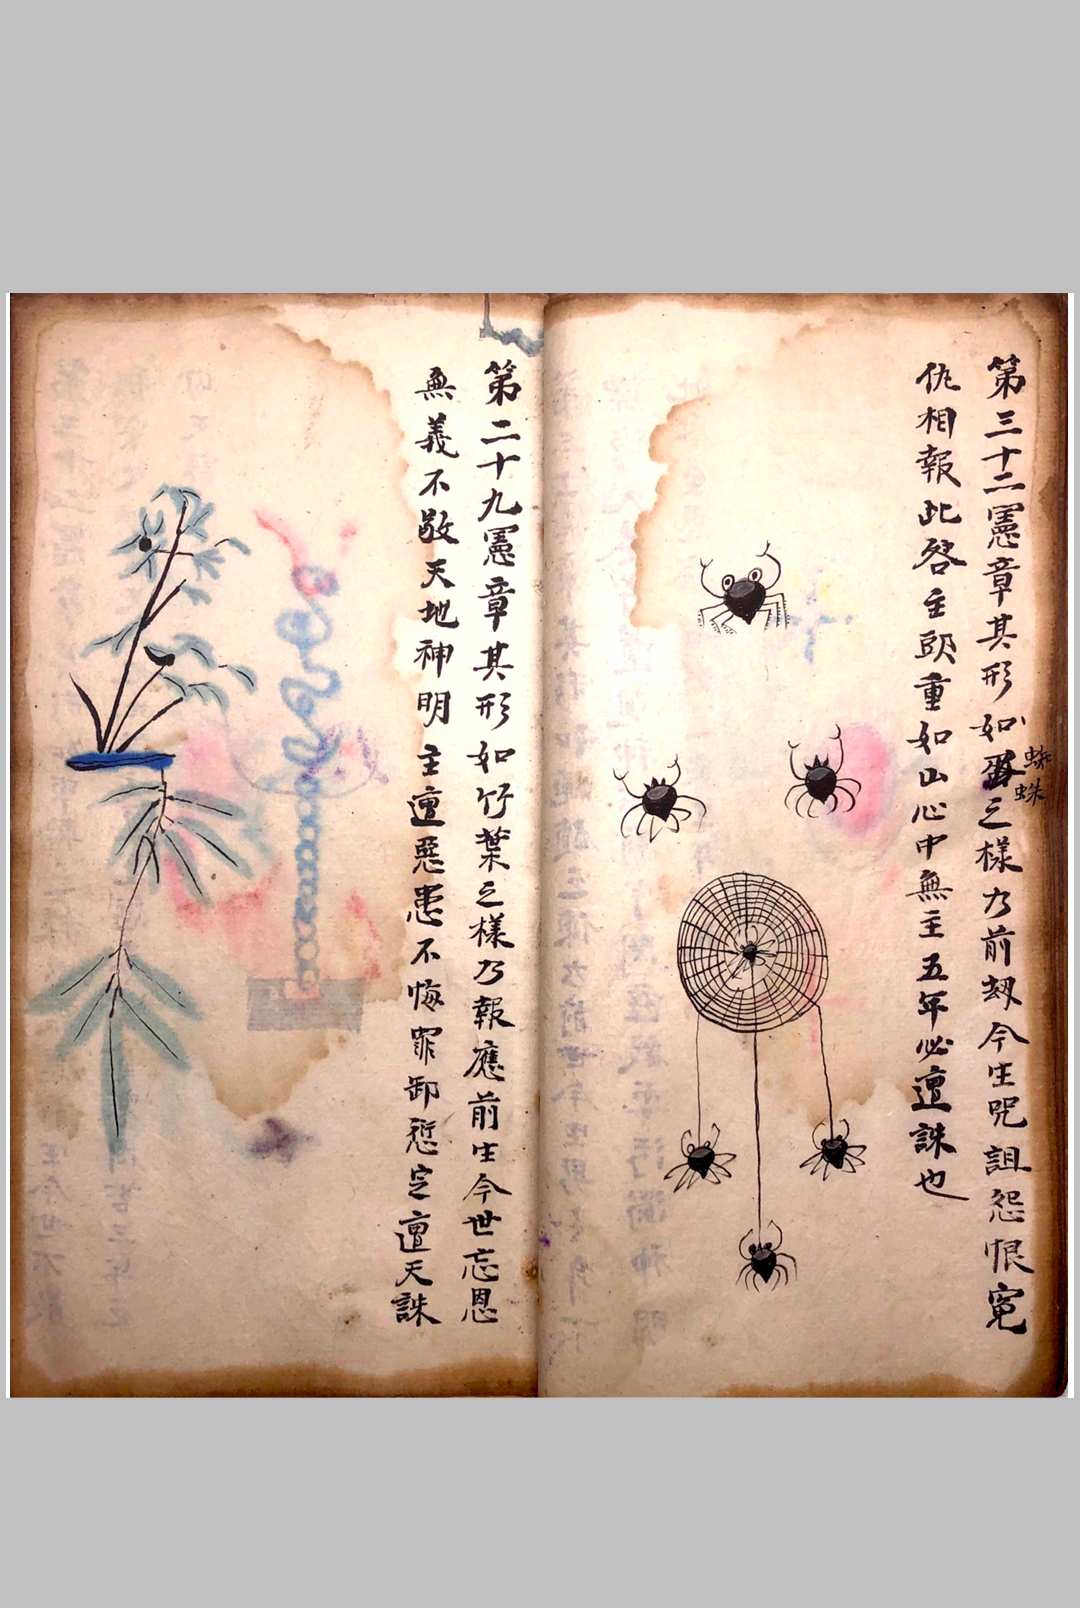 第三十二憲章其形如蜘蛛之樣乃前劫今生咒詛怨恨冤
仇相報此啓主頭重如山心中無主五年必遭誅也
第二十九憲章其形如竹葉之樣乃報應前生今世忘恩
無義不敬天地神明主遭惡患不悔罪卸愆定遭天誅